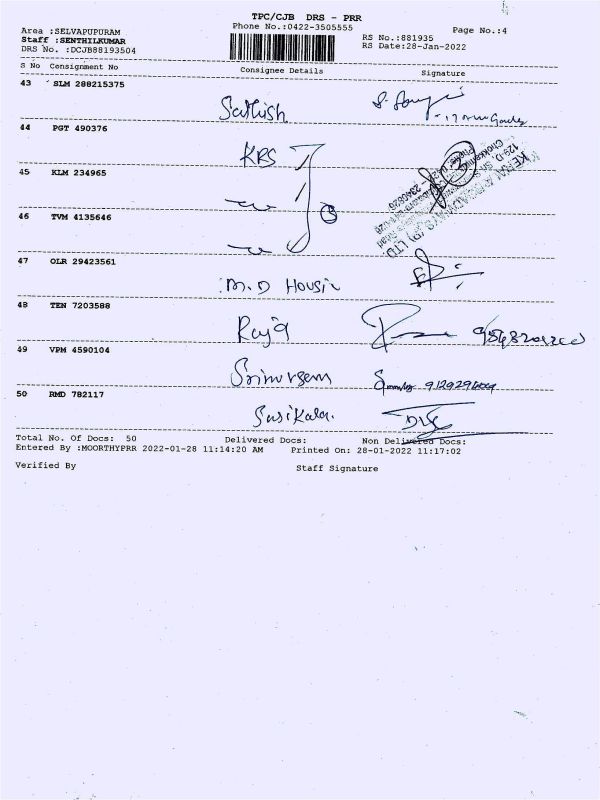 TPC/CJB DRS - PRR
Area :SELVAPUPURAM Phone No.:0422-3505555 Page No.:4
Staff :SENTHILKUMAR RS No.:881935
DRS No. :DCJB88193504 RS Date:28-Jan-2022
S No Consignment No Consignee Details Signature
43 SLM 288215375
Sathish
44 PGT 490376
KRS
45 KLM 234965
46 TVM 4135646
47 OLR 29423561
M.D
48 TEN 7203588
Raja
49 VPM 4590104
50 RMD 782117
Sasikala.
Total No. Of Docs: 50 Delivered Docs: Non Delivered Docs:
Entered By :MOORTHYPRR 2022-01-28 11:14:20 AM Printed On: 28-01-2022 11:17:02
Verified By Staff Signature